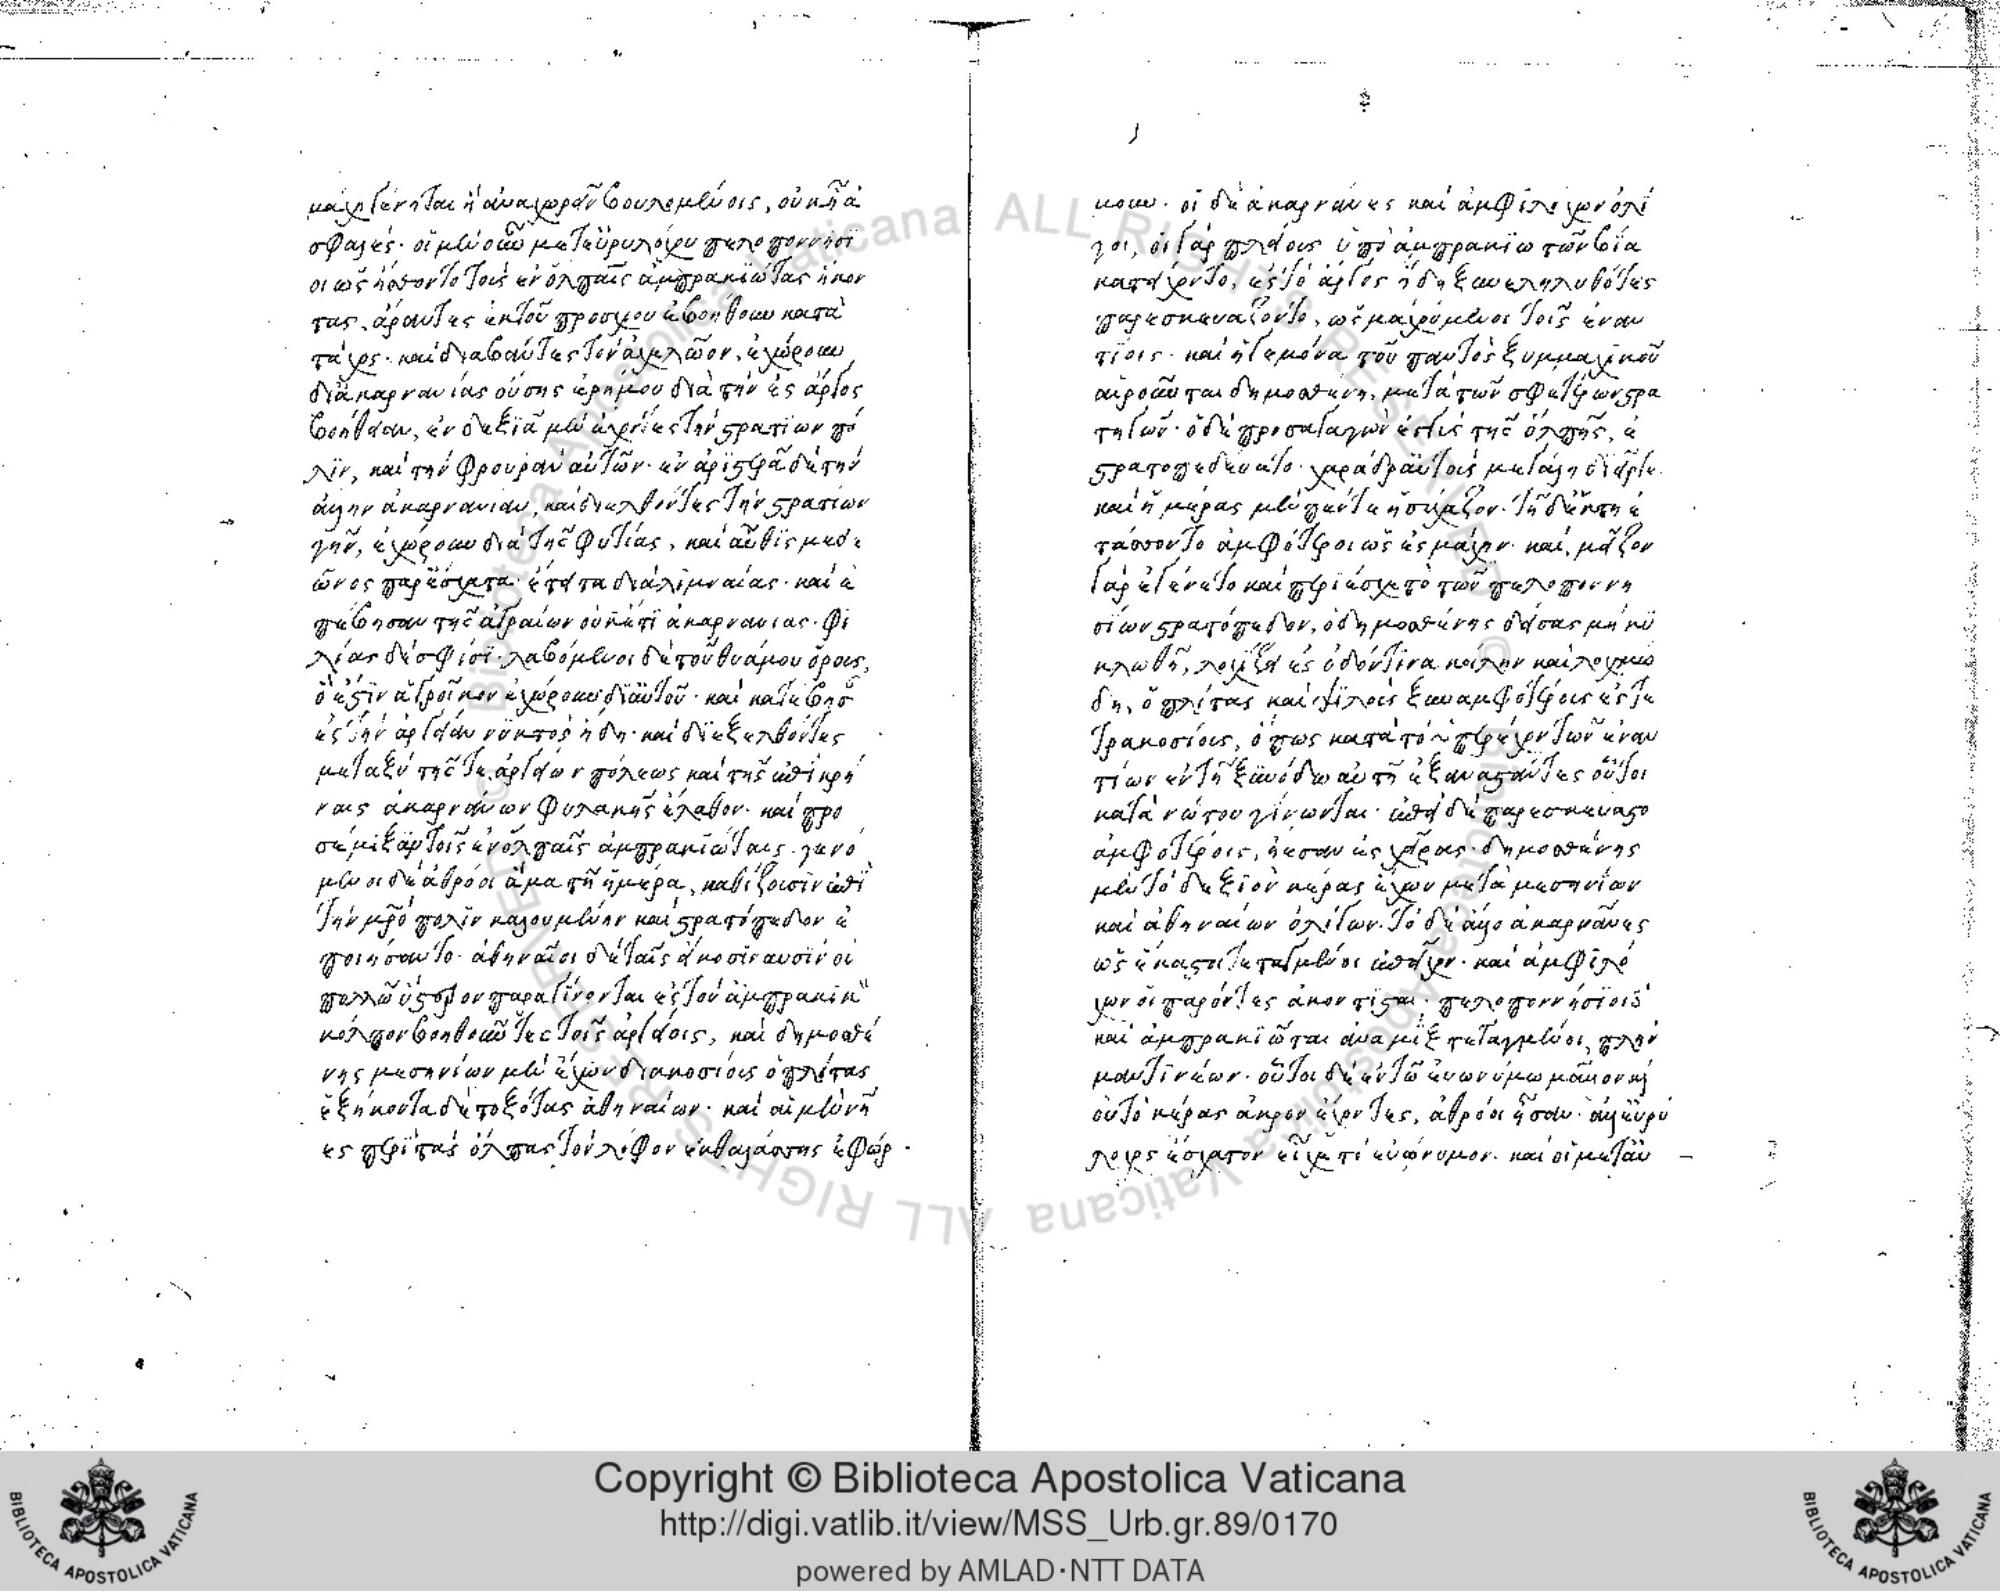 μάχη γένηται ἢ ἀναχωρεῖν βουλομένοις, οὐκ ἦ ἀ
σφαλές· οἱ μὲν οὖν μετ' εὐρυλόχου πελοποννήσι
οι ὡς ἤσθοντο τοὺς ἐν ὄλπαις ἀμπρακιώτας ἥκον
τας, ἄραντες ἐκ τοῦ προσχίου ἐβοήθουν κατὰ
τάχος· καὶ διαβάντες τὸν ἀχελῶον, ἐχώρουν
δι' ἀκαρνανίας οὔσης ἐρήμου διὰ τὴν ἐς ἄργος
βοήθειαν, ἐν δεξιᾷ μὲν ἔχοντες τὴν στρατίων πό
λιν, καὶ τὴν φρουρὰν αὐτῶν· ἐν ἀριστερᾷ δὲ τὴν
ἄλλην ἀκαρνανίαν, καὶ διελθόντες τὴν στρατίων
γῆν, ἐχώρουν διὰ τῆς φυτίας, καὶ αὖθις μεδε
ῶνος παρ' ἔσχατα· ἔπειτα διὰ λιμναίας· καὶ ἐ
πέβησαν τῆς ἀγραίων οὐκέτι ἀκαρνανίας· φι
λίας δὲ σφίσι· λαβόμενοι δὲ τοῦ θυάμου ὄρους,
ὅ ἐστιν ἀγροῖκον ἐχώρουν δι' αὐτοῦ· καὶ κατέβησαν
ἐς τὴν ἀργείαν νυκτὸς ἤδη· καὶ διεξελθόντες
μεταξὺ τῆς τε ἀργείων πόλεως καὶ τῆς ἐπὶ κρή
ναις ἀκαρνάνων φυλακῆς ἔλαθον· καὶ προ
σέμιξαν τοῖς ἐν ὄλπαις ἀμπρακιώταις. γενό
μενοι δὲ ἀθρόοι ἅμα τῇ ἡμέρᾳ, καθίζουσιν ἐπὶ
τὴν μητρόπολιν καλουμένην καὶ στρατόπεδον ἐ
ποιήσαντο· ἀθηναῖοι δὲ ταῖς εἴκοσι ναυσὶν οὐ
πολλῷ ὕστερον παραγίνονται ἐς τὸν ἀμπρακικὸν
κόλπον βοηθοῦντες τοῖς ἀργείοις, καὶ δημοσθέ
νης μεσηνίων μὲν ἔχων διακοσίους ὁπλίτας
ἑξήκοντα δὲ τοξότας ἀθηναίων· καὶ αἱ μὲν νῆ
ες περὶ τὰς ὄλπας τὸν λόφον ἐκ θαλάσσης ἐφώρ
μουν· οἱ δὲ ἀκαρνᾶνες καὶ ἀμφιλόχων ὀλί
γοι, οἱ γὰρ πλείους ὑπὸ ἀμπρακιωτῶν βίᾳ
κατείχοντο, ἐς τὸ ἄργος ἤδη ξυνεληλυθότες
παρεσκευάζοντο, ὡς μαχούμενοι τοῖς ἐναν
τίοις· καὶ ἡγεμόνα τοῦ παντὸς ξυμμαχικοῦ
αἱροῦνται δημοσθένη, μετὰ τῶν σφετέρων στρα
τηγῶν· ὁ δὲ προσαγαγὼν ἐγγὺς τῆς ὄλπης, ἐ
στρατοπεδεύσατο· χαράδρα δ' αὐτοὺς μεγάλη διεῖργε
καὶ ἡμέρας μὲν πέντε ἡσύχαζον· τῇ δ' ἕκτῃ ἐ
τάσσοντο ἀμφότεροι ὡς ἐς μάχην· καὶ, μεῖζον
γὰρ ἐγένετο καὶ περιέσχε τὸ τῶν πελοποννη
σίων στρατόπεδον, ὁ δημοσθένης δείσας μὴ κυ
κλωθῇ, λοχίζει ἐς ὁδόν τινα κοίλην καὶ λοχμώ
δη, ὁπλίτας καὶ ψιλοὺς ξυναμφοτέρους ἐς τε
τρακοσίους, ὅπως κατὰ τὸ ὑπερέχον τῶν ἐναν
τίων ἐν τῇ ξυνόδῳ αὐτῇ ἐξαναστάντες οὗτοι
κατὰ νώτου γίνωνται· ἐπεὶ δὲ παρεσκεύαστο
ἀμφοτέροις, ᾔεσαν ἐς χεῖρας· δημοσθένης
μὲν τὸ δεξιὸν κέρας ἔχων μετὰ μεσηνίων
καὶ ἀθηναίων ὀλίγων. τὸ δὲ ἄλλο ἀκαρνᾶνες
ὡς ἕκαστοι τεταγμένοι ἐπεῖχον· καὶ ἀμφιλό
χων οἱ παρόντες ἀκοντισταί· πελοποννήσιοι δὲ
καὶ ἀμπρακιῶται ἀναμὶξ τεταγμένοι, πλὴν
μαντινέων· οὗτοι δὲ ἐν τῷ εὐωνύμῳ μᾶλλον καὶ
οὐ τὸ κέρας ἄκρον ἔχοντες, ἀθρόοι ἦσαν· ἀλλ' εὐρύ
λοχος ἔσχατον εἶχε τὸ εὐώνυμον· καὶ οἱ μετ' αὐ
Copyright © Biblioteca Apostolica Vaticana
http://digi.vatlib.it/view/MSS_Urb.gr.89/0170
powered by AMLAD·NTT DATA